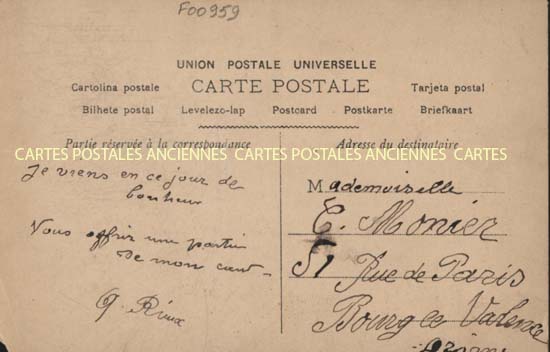 F00959
UNION POSTALE UNIVERSELLE
CARTE POSTALE
Cartolina postale Tarjeta postal
Bilhete postal Levelezo-lap Postcard Postkarte Briefkaart
Partie réservée à la correspondance
Adresse du destinataire
CARTES POSTALES ANCIENNES CARTES POSTALES ANCIENNES CARTES
Je viens en ce jour de
bonheur
Vous offrir une partie
de mon cœur
Rieux
Mademoiselle
E. Monier
51 Rue de Paris
Bourg les Valence